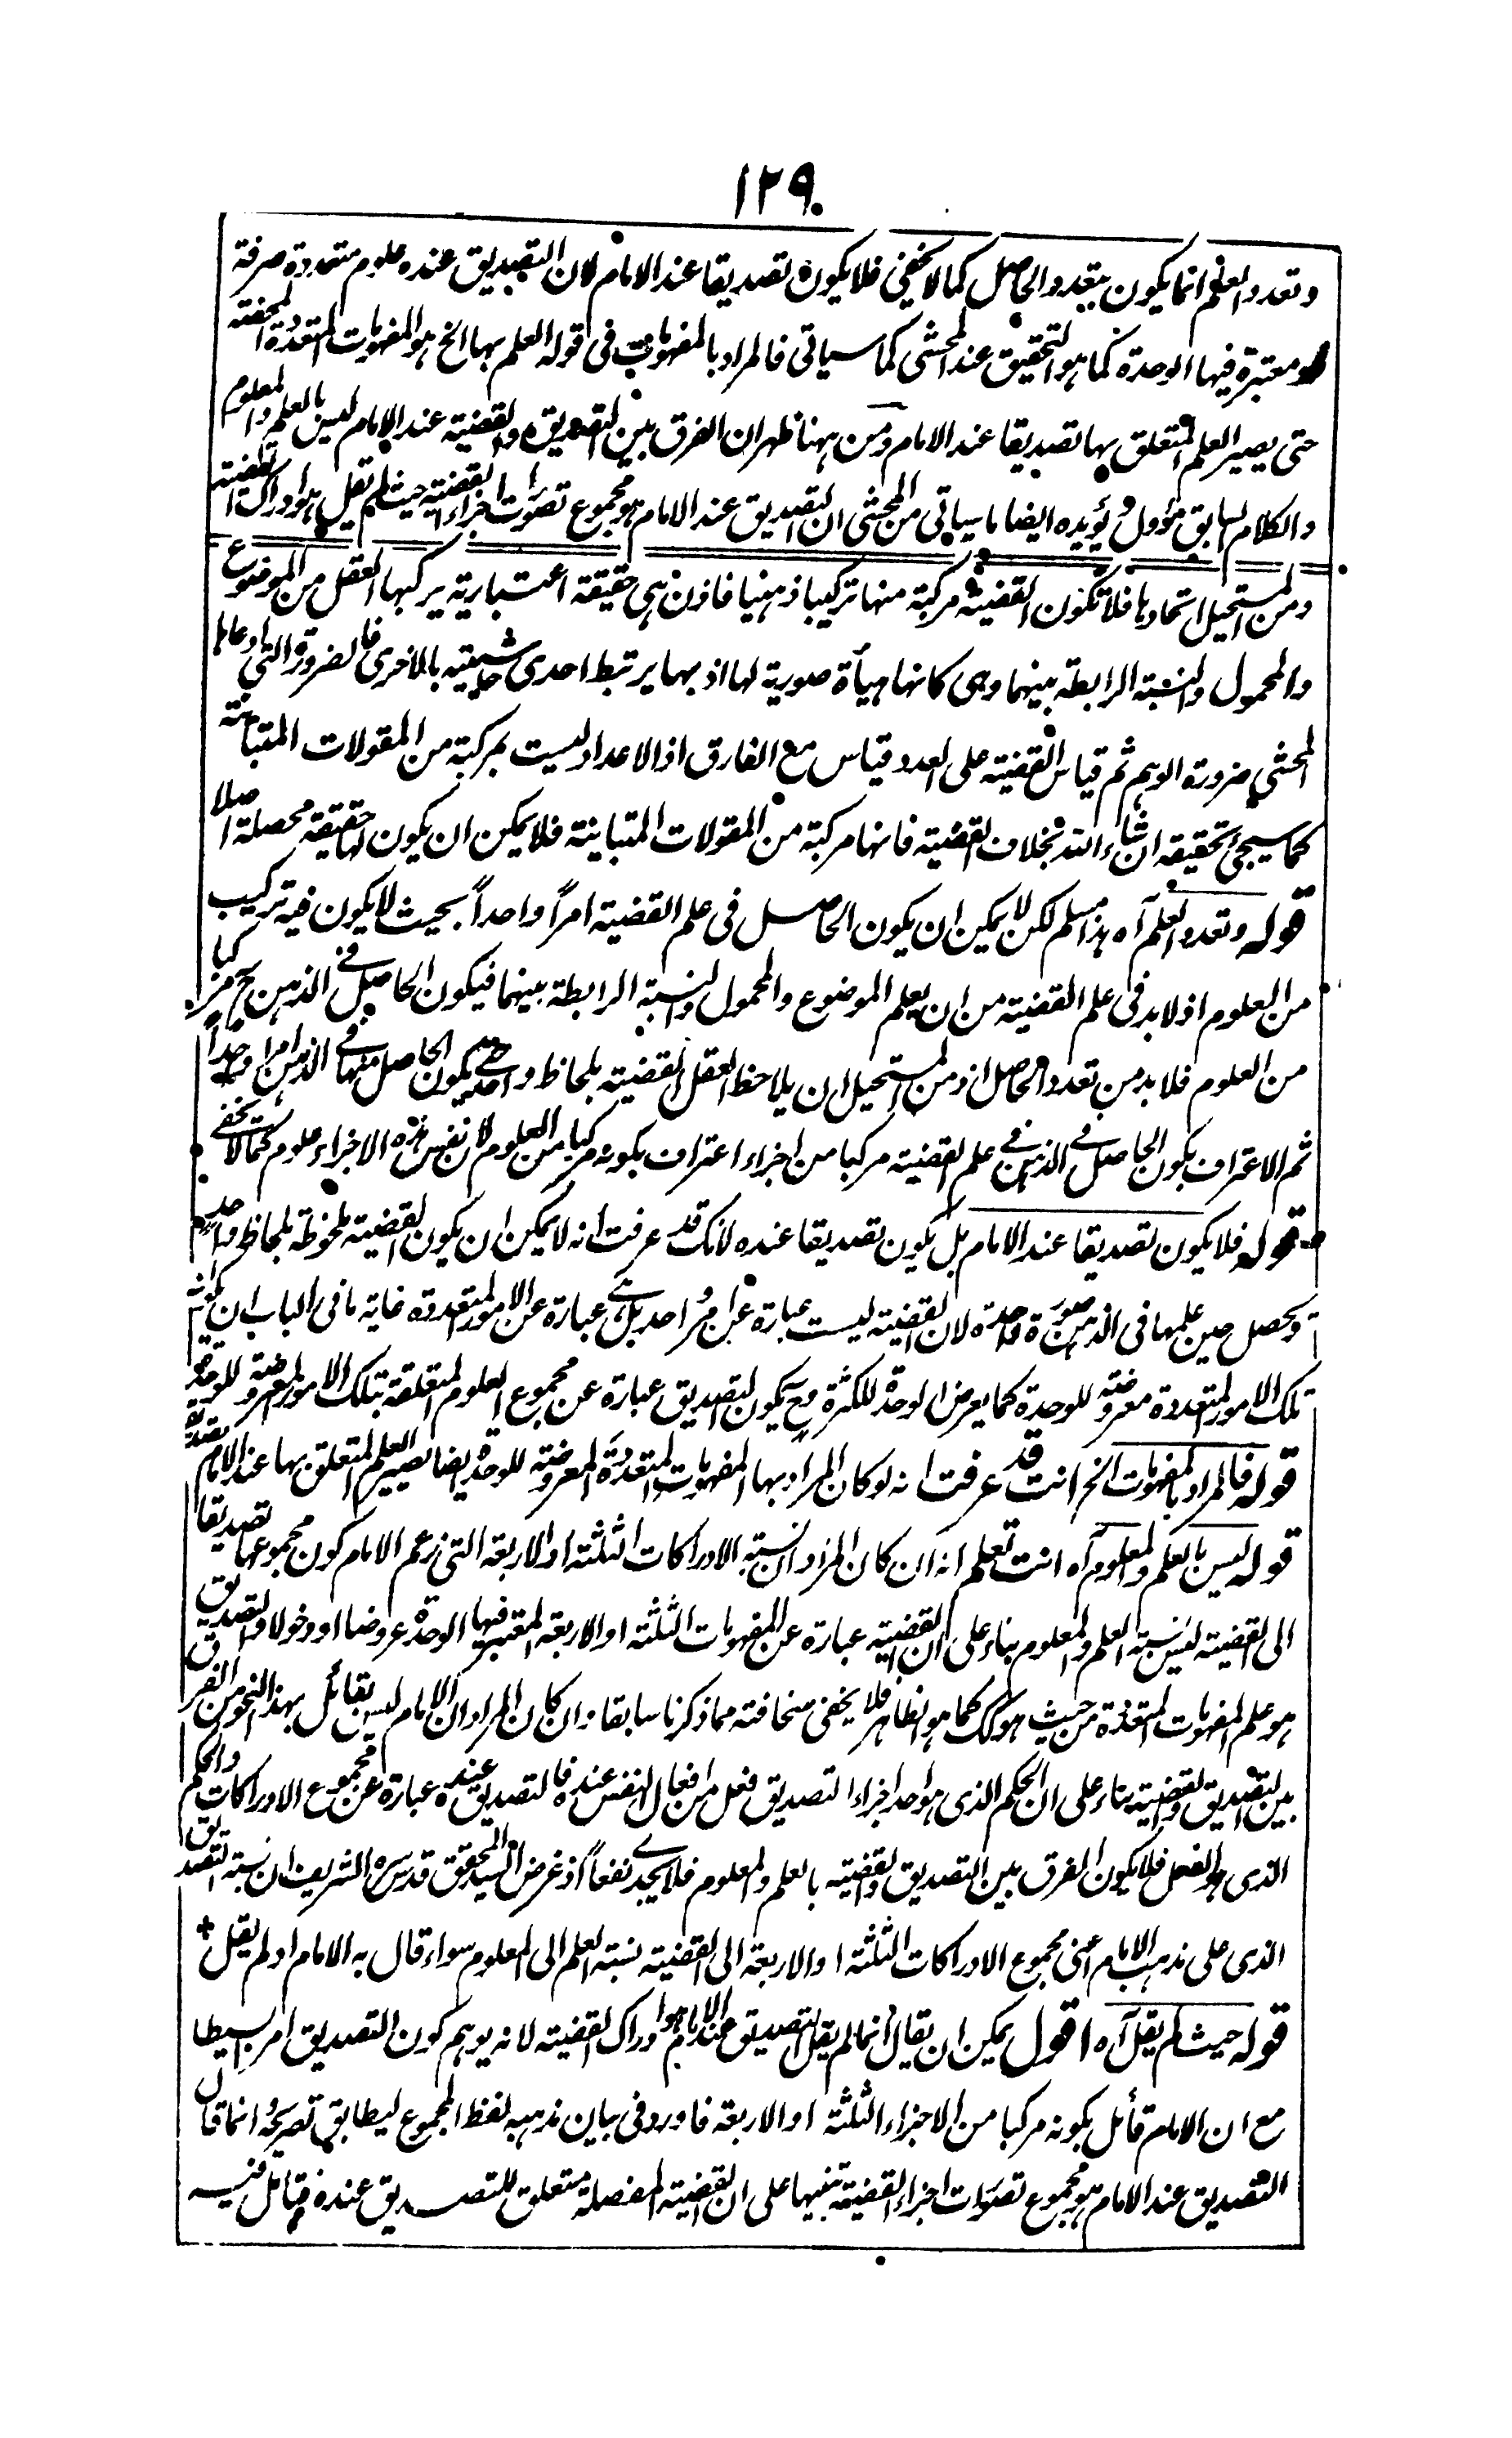 ١٢٩
وتعدد العلم انما يكون بتعدد الحاصل كما لا يخفى فلا يكون تصديقا عند الامام لان التصديق عنده علوم متعددة صرفة
او معتبرة فيها الوحدة كما هو التحقيق عند المحشى كما سياتى فالمراد بالمفهومات فى قوله العلم بها الخ هو المفهومات المتعددة المحضة
حتى يصير العلم المتعلق بها تصديقا عند الامام ومن ههنا ظهر ان الفرق بين التصديق والقضية عند الامام ليس بالعلم والمعلوم
والكلام السابق مؤول ويؤيده ايضا ما سياتى من المحشى ان التصديق عند الامام هو مجموع تصورات اجزاء القضية حيث لم يقل هو ادراك القضية
ومن المستحيل اتحادها فلا تكون القضية مركبة منها تركيبا ذهنيا فاذن هى حقيقة اعتبارية يركبها العقل من الموضوع
والمحمول والنسبة الرابطة بينهما وهى كانها هيأة صورية لها اذ بها يرتبط احدى حاشيتيه بالاخرى فالضرورة التى ادعاها
المحشى ضرورة الوهم ثم قياس القضية على العدد قياس مع الفارق اذ الاعداد ليست بمركبة من المقولات المتباينة
كما سيجئ تحقيقه ان شاء الله بخلاف القضية فانها مركبة من المقولات المتباينة فلا يمكن ان يكون لها حقيقة محصلة اصلا
قوله وتعدد العلم آه هذا مسلم لكن لا يمكن ان يكون الحاصل فى علم القضية امراً واحداً بحيث لا يكون فيه تركيب
من العلوم اذ لا بد فى علم القضية من ان يعلم الموضوع والمحمول والنسبة الرابطة بينهما فيكون الحاصل فى الذهن ح مركبا
من العلوم فلا بد من تعدد الحاصل اذ من المستحيل ان يلاحظ العقل القضية بلحاظ واحد حتى يكون الحاصل منها فى الذهن امرا واحداً
ثم الاعتراف بكون الحاصل فى الذهن فى علم القضية مركبا من اجزاء اعتراف بكونه مركبا من العلوم لان نفس هذه الاجزاء علوم كما لا يخفى
قوله فلا يكون تصديقا عند الامام بل يكون تصديقا عنده لانك قد عرفت انه لا يمكن ان يكون القضية ملحوظة بلحاظ واحد
ويحصل حين علمها فى الذهن صورة واحدة لان القضية ليست عبارة عن امر واحد بل هى عبارة عن الامور المتعددة غاية ما فى الباب ان يكون
تلك الامور المتعددة معروضة للوحدة كما يعرض الوحدة للكثرة وح يكون التصديق عبارة عن مجموع العلوم المتعلقة بتلك الامور المعروضة للوحدة
قوله فالمراد بالمفهومات الخ انت قد عرفت انه لو كان المراد بها المفهومات المتعددة المعروضة للوحدة ايضا يصير العلم المتعلق بها عند الامام تصديقا
قوله ليس بالعلم والمعلوم آه انت تعلم انه ان كان المراد ان نسبة الادراكات الثلثة او الاربعة التى زعم الامام كون مجموعها تصديقا
الى القضية ليس نسبة العلم والمعلوم بناء على ان القضية عبارة عن المفهومات الثلثة او الاربعة المعتبر فيها الوحدة عروضا او دخولا والتصديق
هو علم المفهومات المتعددة من حيث هو كك كما هو الظاهر فلا يخفى سخافته مما ذكرنا سابقا وان كان المراد ان الامام ليس بقائل بهذا النحو من الفرق
بين التصديق والقضية بناء على ان الحكم الذى هو احد اجزاء التصديق فعل من افعال النفس عنده فالتصديق عنده عبارة عن مجموع الادراكات والحكم
الذى هو الفعل فلا يكون الفرق بين التصديق والقضية بالعلم والمعلوم فلا يجدى نفعاً اذ غرض السيد المحقق قدس سره الشريف ان نسبة التصديق
الذى على مذهب الامام اعنى مجموع الادراكات الثلثة او الاربعة الى القضية نسبة العلم الى المعلوم سواء قال به الامام او لم يقل
قوله حيث لم يقل آه اقول يمكن ان يقال انما لم يقل التصديق عند الامام هو ادراك القضية لانه يوهم كون التصديق امرا بسيطا
مع ان الامام قائل بكونه مركبا من الاجزاء الثلثة او الاربعة فاورد فى بيان مذهبه لفظ المجموع ليطابق تصريحه وانما قال
التصديق عند الامام هو مجموع تصورات اجزاء القضية تنبيها على ان القضية المفصلة متعلق للتصديق عنده فتأمل فيه